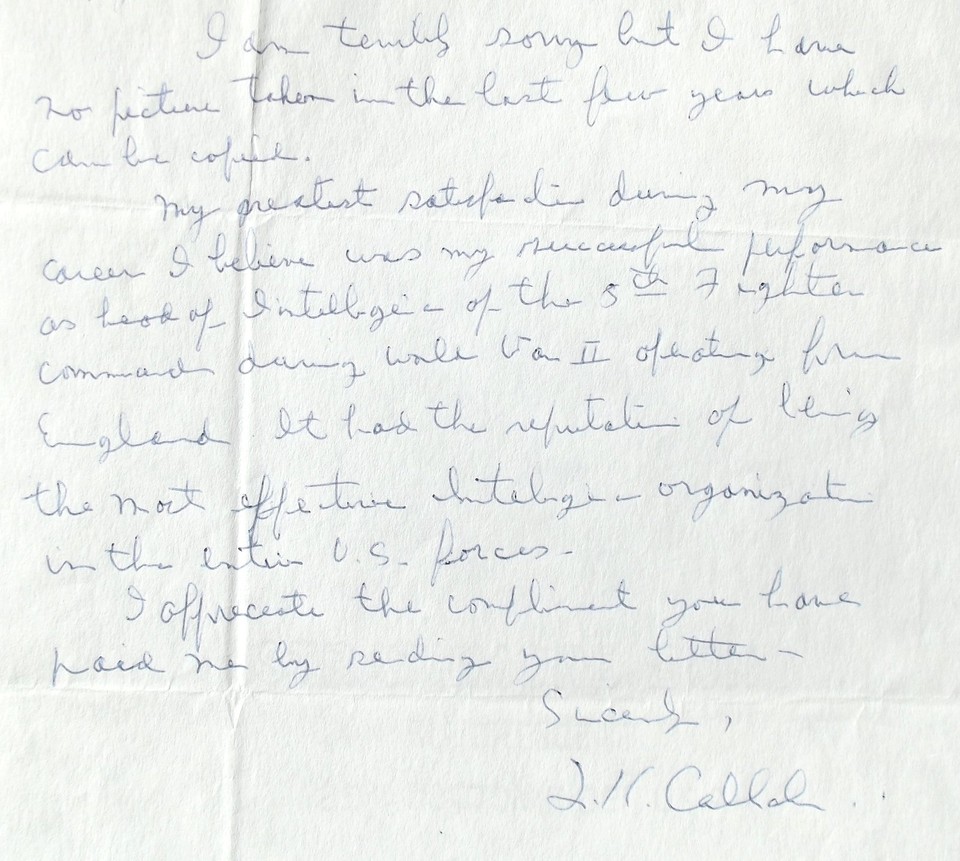 I am terribly sorry but I have
no picture taken in the last few years which
can be copied.
My greatest satisfaction during my
career I believe was my successful performance
as head of Intelligence of the 5th Fighter
command during World War II operating from
England. It had the reputation of being
the most effective Intelligence organization
in the entire U.S. forces-
I appreciate the compliment you have
paid me by sending your letter-
Sincerely,